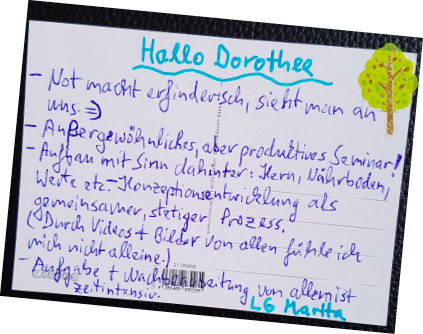 Hallo Dorothea
- Not macht erfinderisch, sieht man an
uns =)
- Außergewöhnliches, aber produktives Seminar!
- Aufbau mit Sinn dahinter: Kern, Nährboden,
Werte etc. - Konzeptionsentwicklung als
gemeinsamer, stetiger Prozess.
(Durch Videos + Bilder von allen fühle ich
mich nicht alleine.)
- Aufgabe + Nachbereitung von allem ist
zeitintensiv.
LG Martta